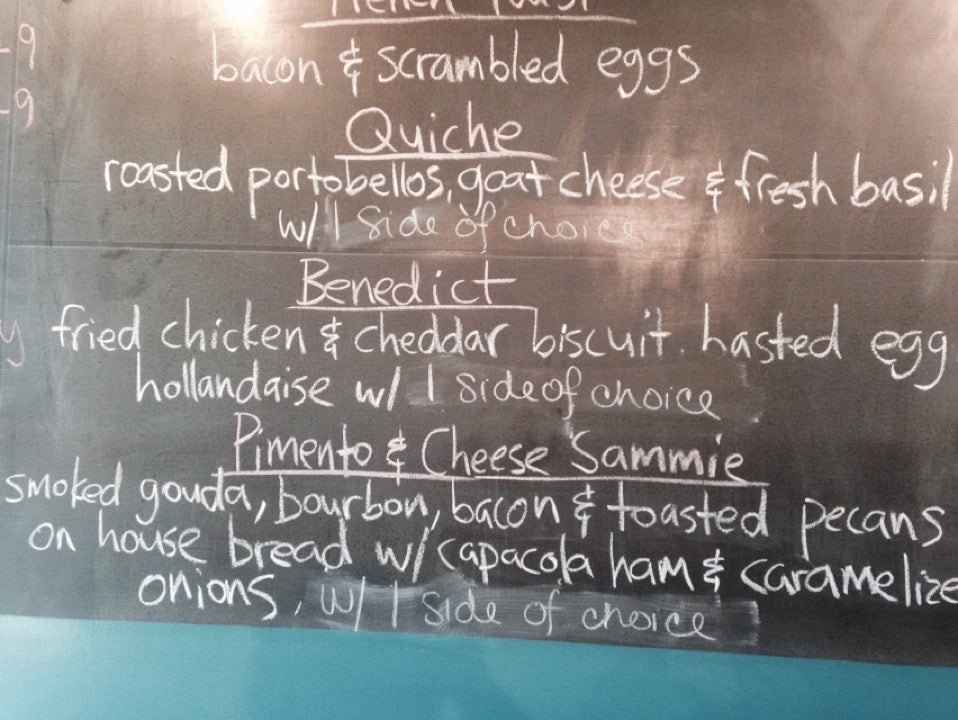 -9
bacon & scrambled eggs
-9
Quiche
roasted portobellos, goat cheese & fresh basil
w/ 1 side of choice
Benedict
y fried chicken & cheddar biscuit. hasted egg
hollandaise w/ 1 side of choice
Pimento & Cheese Sammie
smoked gouda, bourbon, bacon & toasted pecans
on house bread w/ capacola ham & caramelize
onions. w/ 1 side of choice